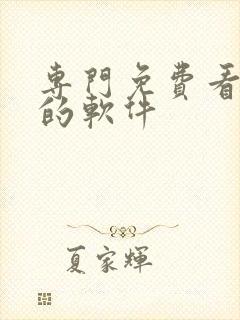 專門免費看
的軟件
夏家輝